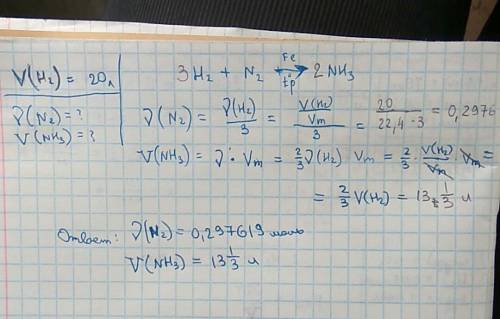 V(H₂) = 20л
3H₂ + N₂ ⇄ 2NH₃
Fe
t p
ν(N₂) = ?
V(NH₃) = ?
ν(N₂) = ν(H₂)/3 = (V(H₂)/Vm)/3 = 20/(22,4·3) = 0,2976
V(NH₃) = ν · Vm = 2/3 ν(H₂) Vm = 2/3 · V(H₂)/Vm · Vm =
= 2/3 V(H₂) = 13 1/3 л
Ответ: ν(N₂) = 0,297619 моль
V(NH₃) = 13 1/3 л